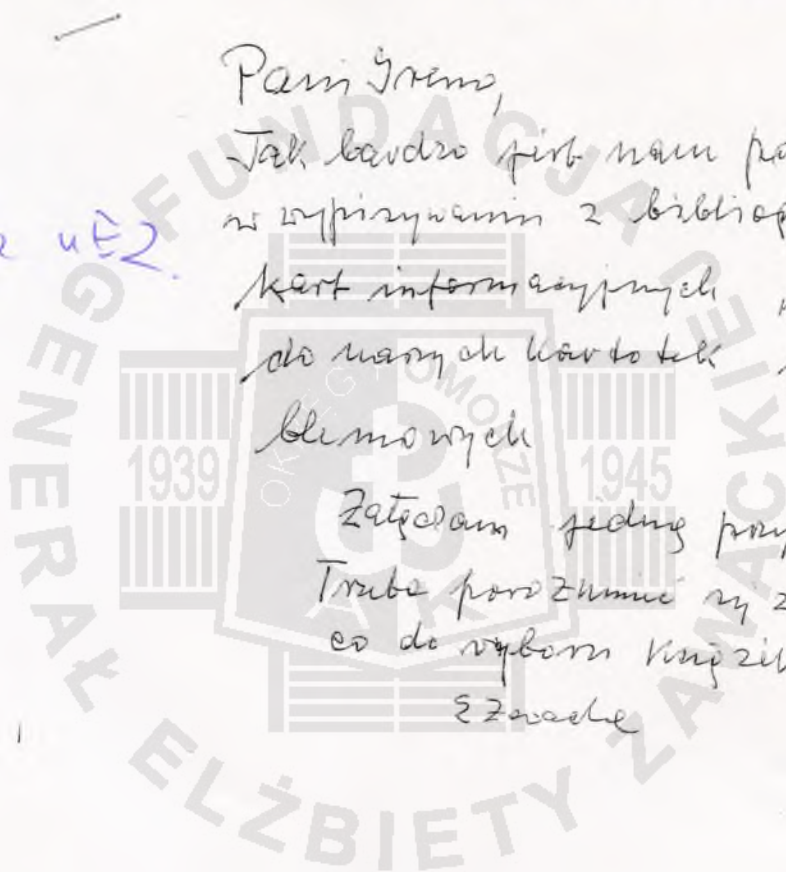 Pani Ireno,
Tak bardzo jest nam po
w wypisywaniu z bibliog
kart informacyjnych
do naszych kartotek
blemowych
Załączam jedną przy
Trzeba porozumieć się z
co do wyboru książek
EZawacka
u EZ.
FUNDACJA GENERAŁ ELŻBIETY ZAWACKIEJ
OKRĘG POMORZE
1939
1945
AK